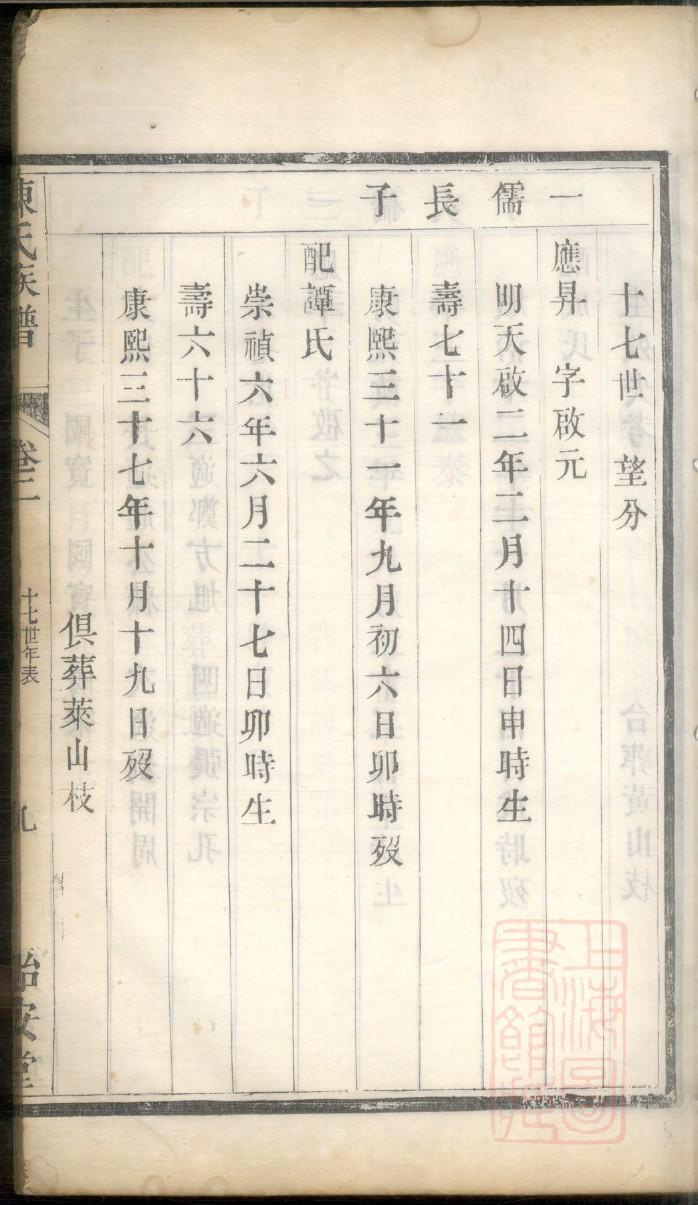 一儒長子
十七世　望分
應昇　字啟元
明天啟二年二月十四日申時生
壽七十一
康熙三十一年九月初六日卯時歿
配譚氏
崇禎六年六月二十七日卯時生
壽六十六
康熙三十七年十月十九日歿
俱葬萊山枝
陳氏族譜
卷二
十七世年表
九
怡安堂
上海圖書館藏